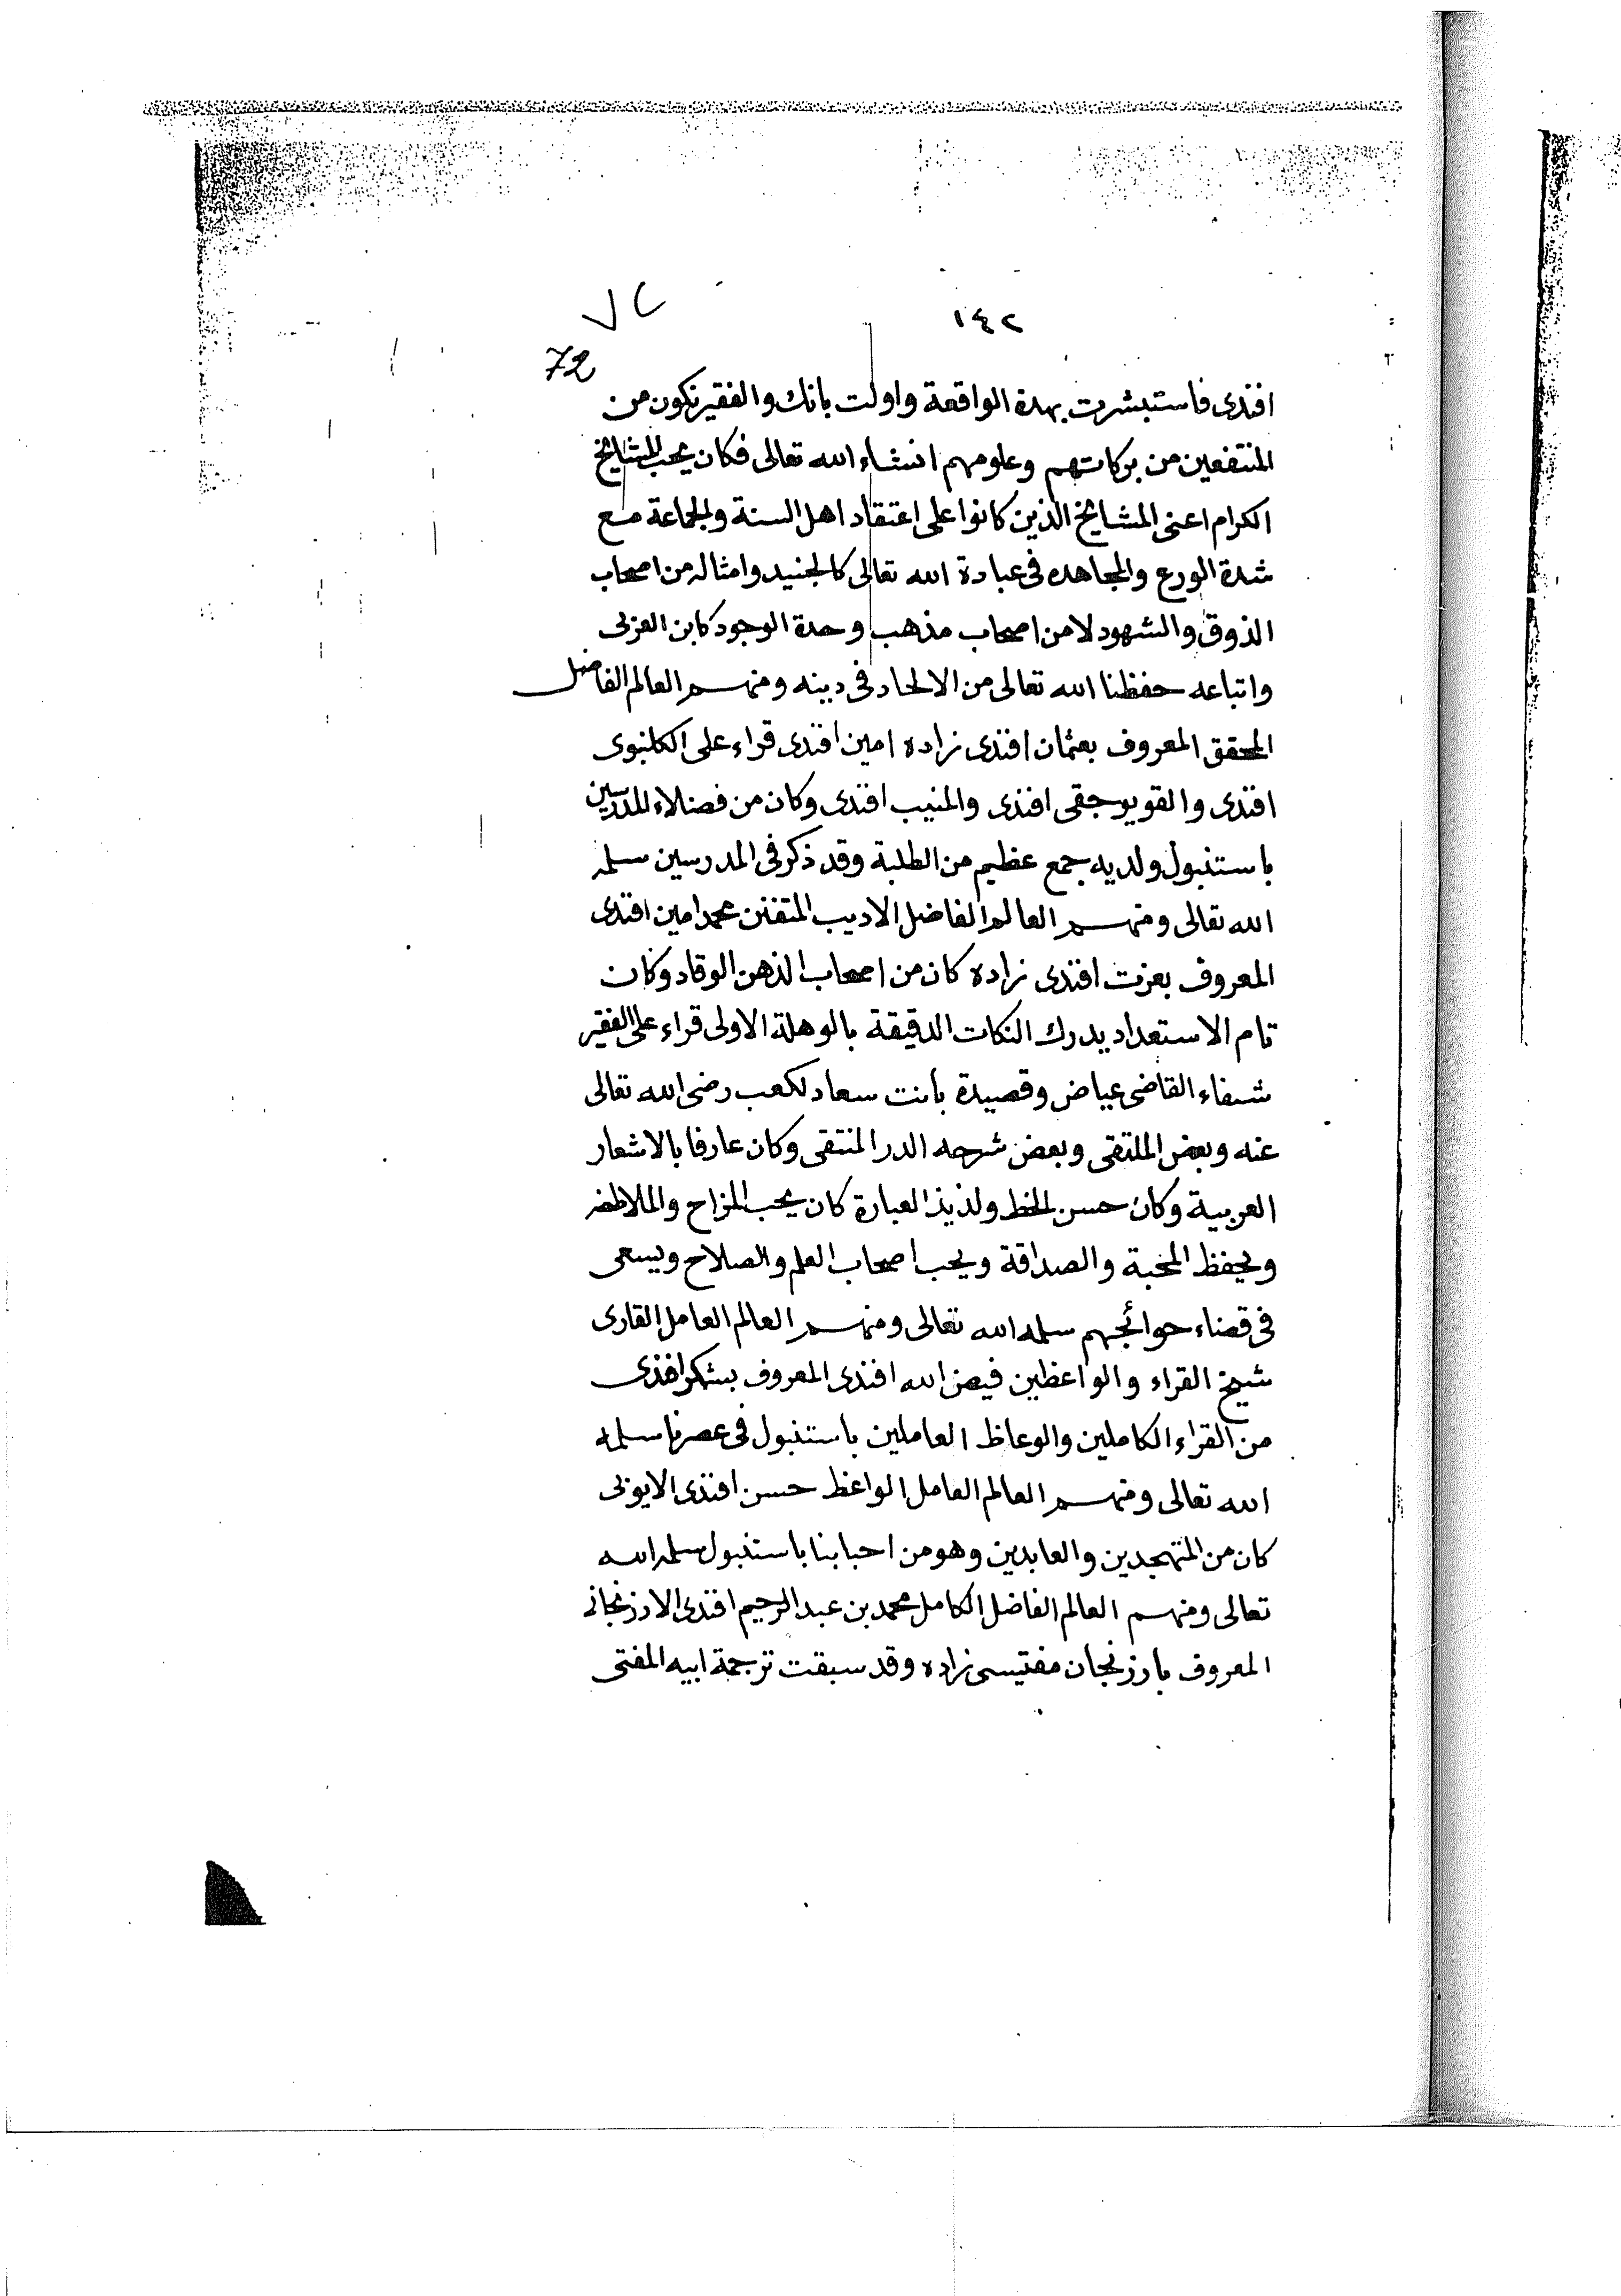 ١٤٢
٧٢
72
افندى فاستبشرت بهذه الواقعة واولت بانك والفقير نكون من
المنتفعين من بركاتهم وعلومهم انشاء الله تعالى فكان يحب المشايخ
الكرام اعنى المشايخ الذين كانوا على اعتقاد اهل السنة والجماعة مع
شدة الورع والمجاهده فى عبادة الله تعالى كالجنيد وامثاله من اصحاب
الذوق والشهود لا من اصحاب مذهب وحدة الوجود كابن العربى
واتباعه حفظنا الله تعالى من الالحاد فى دينه ومنهم العالم الفاضل
المحقق المعروف بعثمان افندى زاده امين افندى قراء على الكلنبوى
افندى والقويوجقى افندى والمنيب افندى وكان من فضلاء المدرسين
باستنبول ولديه جمع عظيم من الطلبة وقد ذكر فى المدرسين سلمه
الله تعالى ومنهم العالم الفاضل الاديب المتفنن محمد امين افندى
المعروف بعزت افندى زاده كان من اصحاب الذهن الوقاد وكان
تام الاستعداد يدرك النكات الدقيقة بالوهلة الاولى قراء على الفقير
شفاء القاضى عياض وقصيدة بانت سعاد لكعب رضى الله تعالى
عنه وبعض الملتقى وبعض شرحه الدر المنتقى وكان عارفا بالاشعار
العربية وكان حسن الخط ولذيذ العبارة كان يحب المزاح والملاطفه
ويحفظ المحبة والصداقة ويحب اصحاب العلم والصلاح ويسعى
فى قضاء حوائجهم سلمه الله تعالى ومنهم العالم العامل القارى
شيخ القراء والواعظين فيض الله افندى المعروف بشكر افندى
من القراء الكاملين والوعاظ العاملين باستنبول فى عصرنا سلمه
الله تعالى ومنهم العالم العامل الواعظ حسن افندى الايوبى
كان من المتهجدين والعابدين وهو من احبابنا باستنبول سلمه الله
تعالى ومنهم العالم الفاضل الكامل محمد بن عبد الرحيم افندى الارزنجانى
المعروف بارزنجان مفتيسى زاده وقد سبقت ترجمة ابيه المفتى